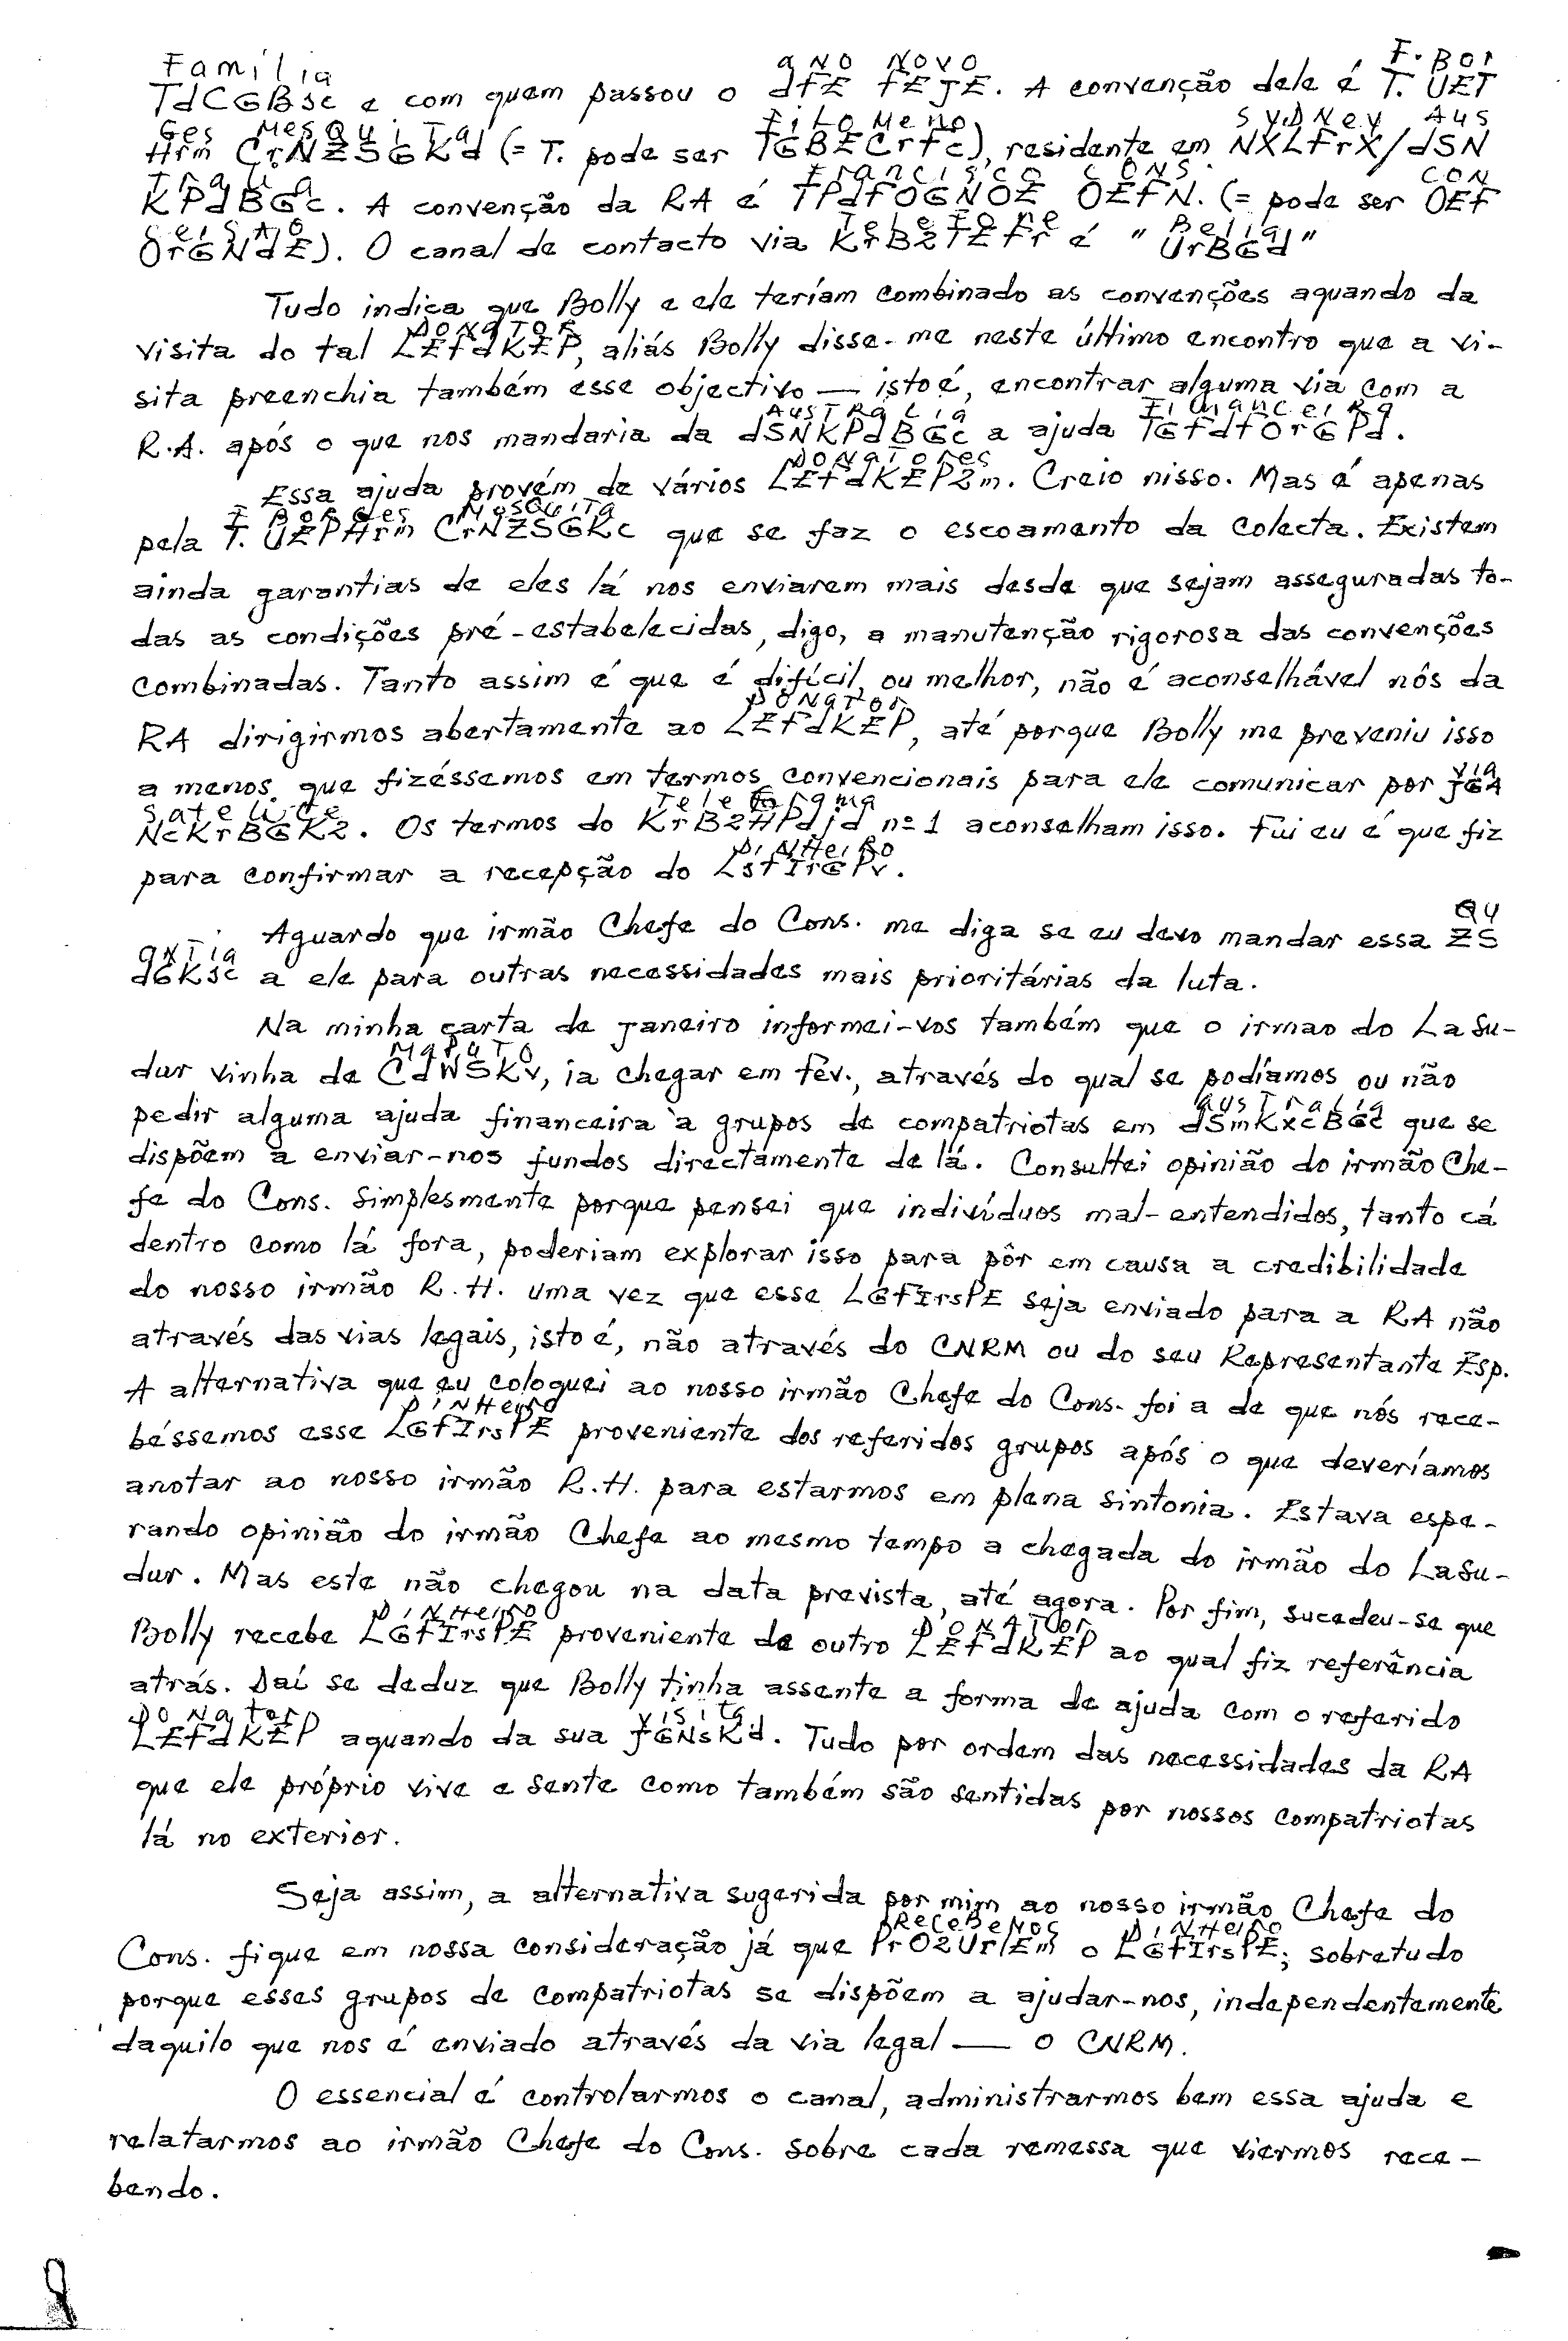 Família        aNO NOVO        F. BOr
TdCGBsc e com quem passou o dfE fEJE. A convenção dele é T. UET
Ges MesQuiTa        FiLoMeno        SYDNeY AUS
Hrm CrNZSGKd (= T. pode ser TGBECrfc), residente em NXLFrX/dSN
Tralia        Francisco CONS.        CON
KPdBGc. A convenção da RA é TPdfOGNOE OEFN. (= pode ser OEF
CeiSAO        TeleFone        Bella
OrGNdE). O canal de contacto via KrB2TEFr é " UrBGd"
Tudo indica que Bolly e ele teríam combinado as convenções aquando da
DONaTOr
visita do tal LEfdKEP, aliás Bolly disse-me neste último encontro que a vi-
sita preenchia também esse objectivo — isto é, encontrar alguma via com a
AUSTRaLia        FiNanceiRa
R.A. após o que nos mandaria da dSNKPdBGc a ajuda TGfdfOrGPd.
DONaTOres
Essa ajuda provém de vários LEfdKEP2m. Creio nisso. Mas é apenas
F BOrGes MesQuiTa
pela T. UEPHrm CrNZSGKc que se faz o escoamento da colecta. Existem
ainda garantias de eles lá nos enviarem mais desde que sejam asseguradas to-
das as condições pré-estabelecidas, digo, a manutenção rigorosa das convenções
combinadas. Tanto assim é que é difícil, ou melhor, não é aconselhável nós da
DONaTOr
RA dirigirmos abertamente ao LEFdKEP, até porque Bolly me preveniu isso
via
a menos que fizéssemos em termos convencionais para ele comunicar por fGA
SateliTe        TeleGrama
NcKrBGK2. Os termos do KrB2HPdjd nº 1 aconselham isso. Fui eu é que fiz
DiNHeiRO
para confirmar a recepção do LsfIrGPv.
QU
Aguardo que irmão Chefe do Cons. me diga se eu devo mandar essa ZS
aNTia
dGKsc a ele para outras necessidades mais prioritárias da luta.
Na minha carta de janeiro informei-vos também que o irmao do LaSu-
MaPUTO
dur vinha de CdWSKv, ia chegar em Fev., através do qual se podíamos ou não
AUSTralia
pedir alguma ajuda financeira a grupos de compatriotas em dSmKxcBGc que se
dispõem a enviar-nos fundos directamente de lá. Consultei opinião do irmão Che-
fe do Cons. simplesmente porque pensei que indivíduos mal-entendidos, tanto cá
dentro como lá fora, poderiam explorar isso para pôr em causa a credibilidade
do nosso irmão R.H. uma vez que esse LGfIrsPE seja enviado para a RA não
através das vias legais, isto é, não através do CNRM ou do seu Representante Esp.
A alternativa que eu coloquei ao nosso irmão Chefe do Cons. foi a de que nós rece-
DiNHeiro
béssemos esse LGfIrsPE proveniente dos referidos grupos após o que deveríamos
anotar ao nosso irmão R.H. para estarmos em plena sintonia. Estava espe-
rando opinião do irmão Chefe ao mesmo tempo a chegada do irmão do LaSu-
dur. Mas este não chegou na data prevista, até agora. Por fim, sucedeu-se que
DiNHeiro        DONATOr
Bolly recebe LGfIrsPE proveniente de outro LEFdKEP ao qual fiz referência
atrás. Daí se deduz que Bolly tinha assente a forma de ajuda com o referido
DONator        visita
LEFdKEP aquando da sua fGNsKd. Tudo por ordem das necessidades da RA
que ele próprio vive e sente como também são sentidas por nossos compatriotas
lá no exterior.
Seja assim, a alternativa sugerida por mim ao nosso irmão Chefe do
ReCeBeMOS        DiNHeiro
Cons. fique em nossa consideração já que PrO2UrlEm o LGfIrsPE; sobretudo
porque esses grupos de compatriotas se dispõem a ajudar-nos, independentemente
daquilo que nos é enviado através da via legal — o CNRM.
O essencial é controlarmos o canal, administrarmos bem essa ajuda e
relatarmos ao irmão Chefe do Cons. sobre cada remessa que viermos rece-
bendo.